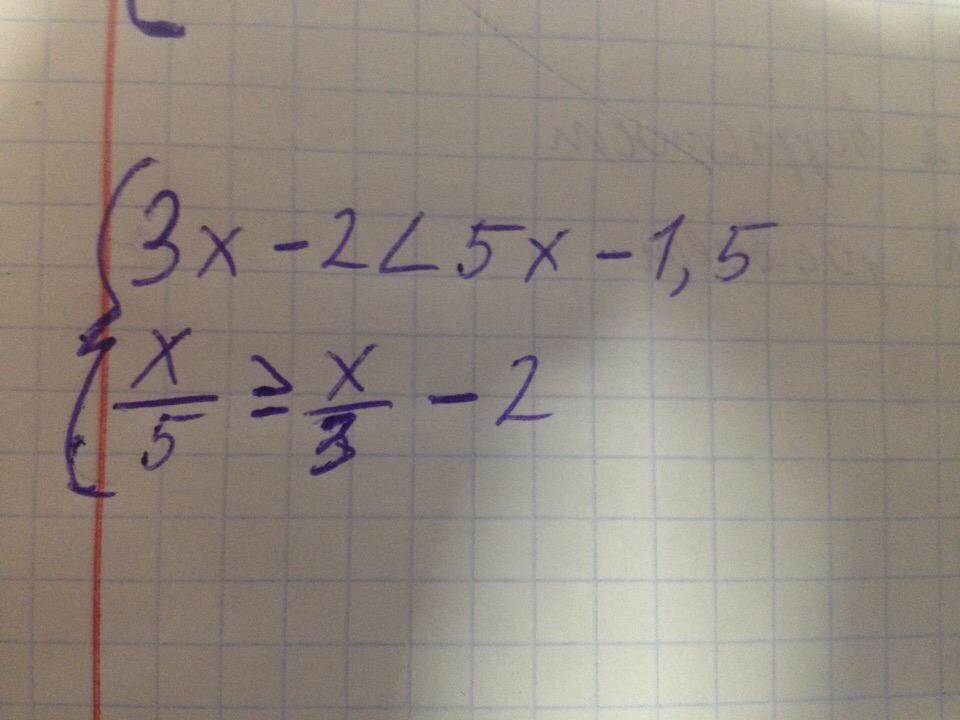 3x - 2 < 5x - 1,5
x/5 ≥ x/3 - 2